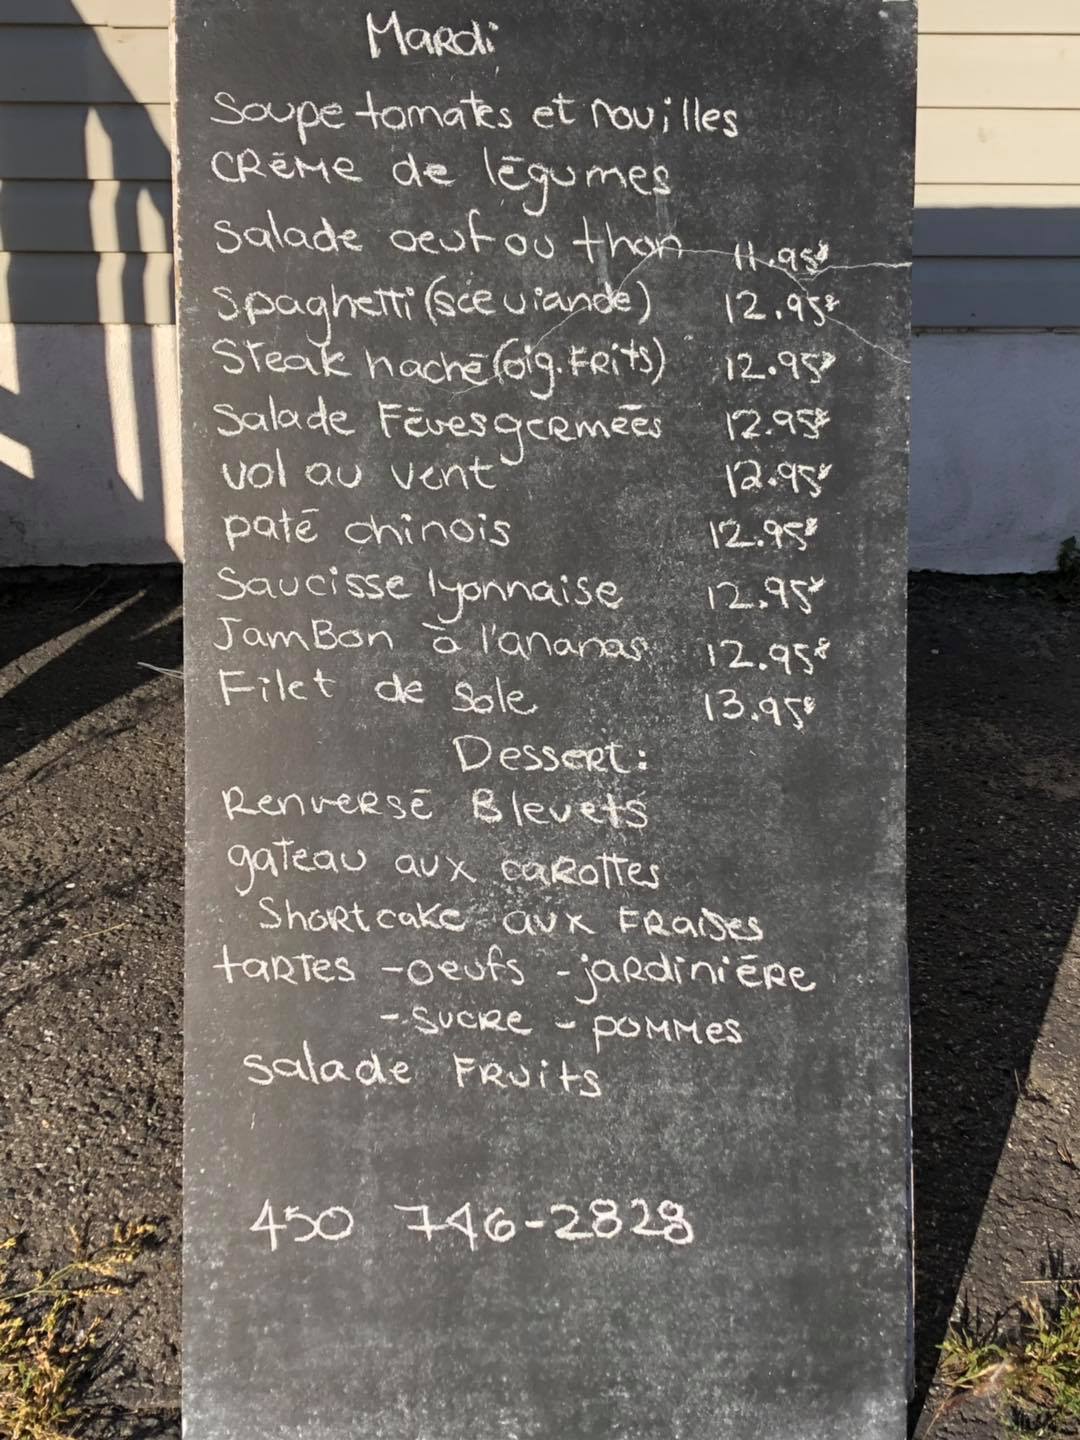 Mardi
Soupe tomates et nouilles
CRēMe de lēgumes
Salade oeuf ou thon 11.95$
Spaghetti (sce viande) 12.95$
Steak hachē (oig. FRits) 12.95$
Salade Fèves germēēs 12.95$
vol au vent 12.95$
patē chinois 12.95$
Saucisse lyonnaise 12.95$
JamBon ā l'ananas 12.95$
Filet de sole 13.95$
Dessert:
RenveRsē Bleuets
gateau aux caRottes
Shortcake aux FRaises
taRTes -oeufs -jaRdiniēRe
-sucRe -poMMes
Salade FRuits
450 746-2828